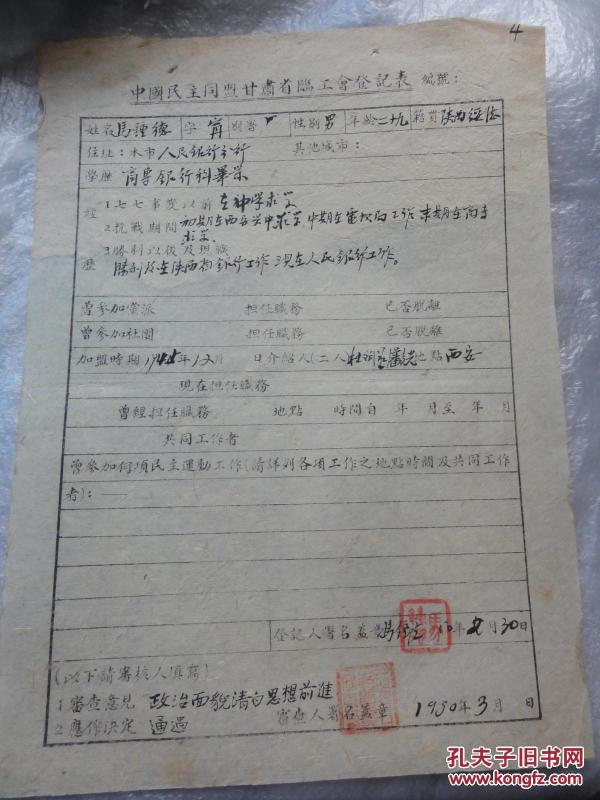 4
中國民主同盟甘肅省臨工會登記表 編號：
姓名 馬鍾德 字 別號 性別 男 年齡 二十九 籍貫 陝西
住址：本市人民銀行 其他城市：
學歷 商專銀行科畢業
經 1 七七事變以前 在中学求学
2 抗戰期間 初期在西安 中求学 中期在 局工作 末期在商專
求学
3 勝利以後及現職
歷 勝利后在陝西省銀行工作 現在人民銀行工作。
曾參加黨派 担任職務 已否脫離
曾參加社團 担任職務 已否脫離
加盟時期 194 年12月 日 介紹人（二人） 地點 西安
現在担任職務
曾經担任職務 地點 時間自 年 月至 年 月
共同工作者
曾參加何項民主運動工作（請詳列各項工作之地點時間及共同工作
者）：——
登記人署名蓋章 馬 年 月30日
（以下請審核人填寫）
1 審查意見 政治面貌清白思想前進
2 應作決定 通過 審查人署名蓋章 1950年3月 日
孔夫子旧书网
www.kongfz.com